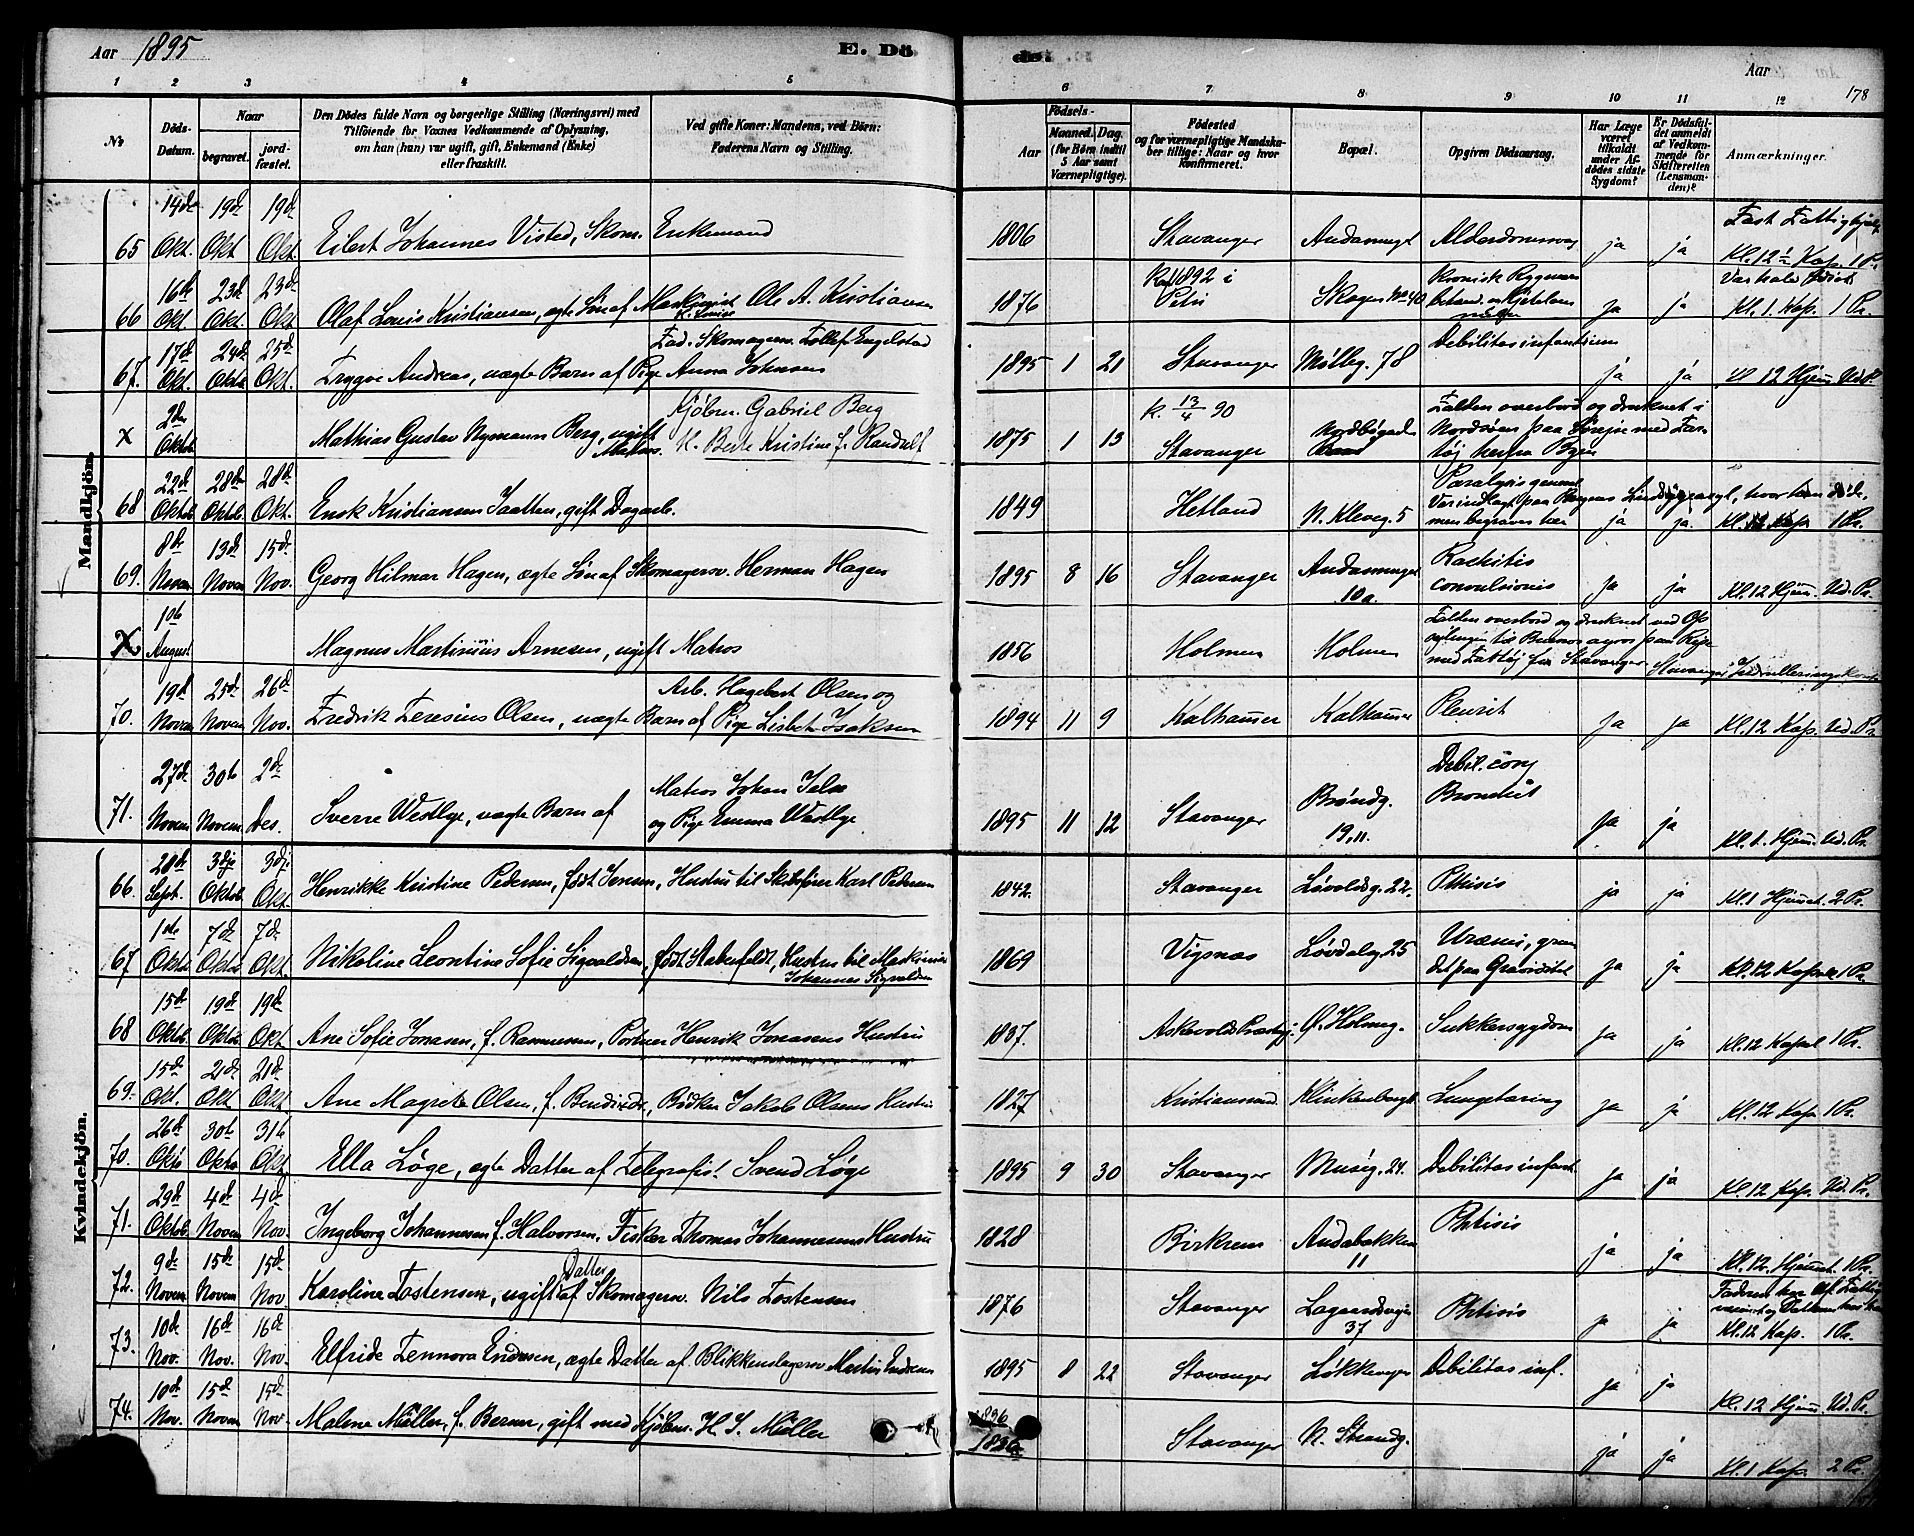 Aar 1895
E. Dö
de.
Aar
178
1 2 3 4 5 6 7 8 9 10 11 12
No
Döds-Datum.
Naar
begravet.
jord-fæstet.
Den Dödes fulde Navn og borgerlige Stilling (Næringsvei) med
Tilföiende for Voxnes Vedkommende af Oplysning,
om han (hun) var ugift, gift, Enkemand (Enke)
eller fraskilt.
Ved gifte Koner: Mandens, ved Börn:
Faderens Navn og Stilling.
Födsels-
Aar
Maaned. Dag.
(for Börn indtil
5 Aar samt
Værnepligtige).
Födested
og for værnepligtige Mandska-
ber tillige: Naar og hvor
konfirmeret.
Bopæl.
Opgiven Dödsaarsag.
Har Læge
været
tilkaldt
under Af-
dödes sidste
Sygdom?
Er Dödsfal-
det anmeldt
af Vedkom-
mende for
Skifteretten
(Lensman-
den)?
Anmærkninger.
Mandkjön.
65 14de Okt. 19de Okt 19de Okt. Eilert Johannes Visted, Skom. Enkemand 1806 Stavanger Alderdomssvag ja ja Fast Fattighjælp Kl. 12½ Kap. 1 Pr.
66 16de Okt. 23de Okt. 23de Okt Olaf Louis Kristiansen, ægte Søn af Maskinist Ole A. Kristiansen 1876 Konf 1892 i Petri Skagen No 40 kronisk Rygmarv ja ja Kl. 1. Kap. 1 Pr.
67. 17de Okt. 24de Oktob 25de Okt. Trygve Andreas, uægte Barn af Pige Anna Johnsen Fad. Skomagersv. Tollef Engelstad 1895 1 21 Stavanger Mølleg. 78 Debilitas infantium ja ja Kl 12 Hjem. Ved Pr.
x 2den Oktob Mathias Gustav Nymann Berg, ugift Matros. Kjøbm. Gabriel Berg H. Berte Kristine f. Randulf 1875 1 13 k. 13/4 90 Stavanger Nordbøgade Falden overbord og druknet i Nordsøen paa Reise med Far-tøj herfra Byen
68 22de Oktob 28de Oktob. 28de Okt. Enok Kristiansen Taatten, gift Dagarb. 1849 Hetland N. Kleveg. 5 Paralysis general Var indlagt paa Bergens Sindssygeasyl, hvor han døde, men begraves her ja ja. Kl. 12 Kap 1 Pr.
69. 8de Novem 13de Novem 15de Nov. Georg Hilmar Hagen, ægte Søn af Skomagersv. Herman Hagen 1895 8 16 Stavanger 10a. Rachitis convulsiones ja ja Kl. 12 Hjem. Ved. Pr.
X 1ste August Magnus Martinius Arnesen, ugift Matros 1856 Holmen Holmen Falden overbord og druknet ved Op sejlingen til Buenos ayros paa Rejse med Fartøj fra Stavanger
70. 19de Novem 25de Novem 26de Nov. Fredrik Teresius Olsen, uægte Barn af Arb. Hagebert Olsen og Pige Lisbeth Isaksen 1894 11 9 Kalhammer Kalhammer Pleurit ja ja Kl. 12 Kap. Ved. Pr
71. 27de Novem 30te Novem 2de Des. Sverre Westlye, uægte Barn af Matros Johan og Pige Emma Westlye 1895 11 12 Stavanger Brøndg. 19, 11. Debil. cong Bronchit ja ja Kl. 1. Hjem. Ved. Pr.
Kvindekjön.
66. 28de Sept. 3dje Oktob. 3dje Okt. Henrikke Kristine Pedersen, født Jensen, Hustru til Skibsfører Karl Pedersen 1842. Stavanger Løvoldsg. 22. Pthisis ja ja Kl. 1 Hjemmet. 2 Pr.
67 1ste Oktob 7de Oktob 7de Okt Nikoline Leontine Sofie Sigvaldsen, født Stabenfeldt, Hustru til Maskinist Johannes Sigvaldsen 1869 Vigsnæs Løvdalsg 25 Uræmi, grun det paa Graviditet ja ja Kl. 12 Kapel 1 Pr.
68 15de Oktob 19de Oktob 19de Okt Ane Sofie Jonasen, f. Rasmussen, Portner Henrik Jonasens Hustru 1837. Askevolds Præstegj. Ø. Holmeg. Sukkersygdom ja ja Kl. 12 Kapel 1 Pr.
69. 15de Okt. 21de Okt 21de Okt Ane Magrete Olsen, f. Bendixsdr, Bødker Jakob Olsens Hustru 1827 Kristianssand. Klinkenberg Lungetæring ja ja Kl. 12 Kap. 1 Pr.
70. 26de Okto 30te Okto 31te Okt Ella Løge, ægte Datter af Telegrafist Svend Løge 1895 9 30 Stavanger Muség. 24. Debilitas infant. ja ja Kl. 12 Kap. Ved. Pr.
71. 29de Oktob. 4de Novem 4de Nov. Ingeborg Johannesen f. Halvorsen, Fisker Thomas Johannesens Hustru 1828 Birkrem Andabakken 11 Phtisis ja ja Kl. 12. Hjemmet. 1 Pr.
72. 9de Novem 15de Novem 15de Nov Karoline Tostensen, ugift Datter af Skomagersv. Nils Tostensen 1876 Stavanger Lagaardsvejen 37 Phtisis ja ja Kl. 12 Kap. 1 Pr.
73. 10de Nov. 16de Nov. 16de Nov. Elfride Lennora Endresen, ægte Datter af Blikkenslagersv Martin Endresen 1895 8 22 Stavanger Løkkevejen Debilitas inf. ja ja Kl. 12 Hjem. Ved. Pr.
74. 10de Nov. 15de Novem 15de Nov. Malene Møller, f. Bernn, gift med Kjøbm. H. J. Møller 1836 1836 Stavanger N. Strandg. ja ja Kl. 1 Kap. 2 Pr.